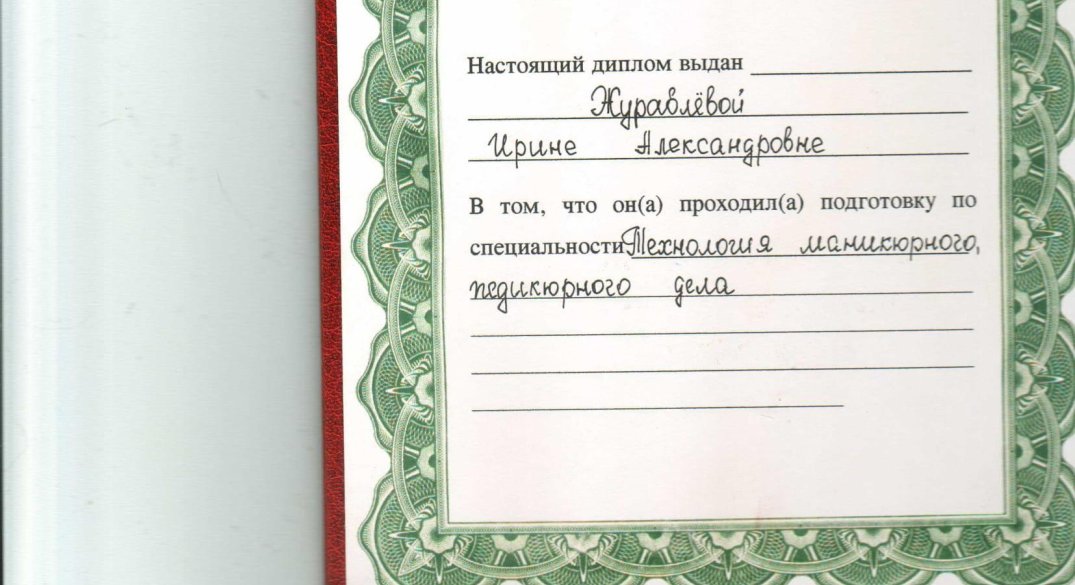 Настоящий диплом выдан
Журавлёвой
Ирине Александровне
В том, что он(а) проходил(а) подготовку по
специальности Технология маникюрного,
педикюрного дела